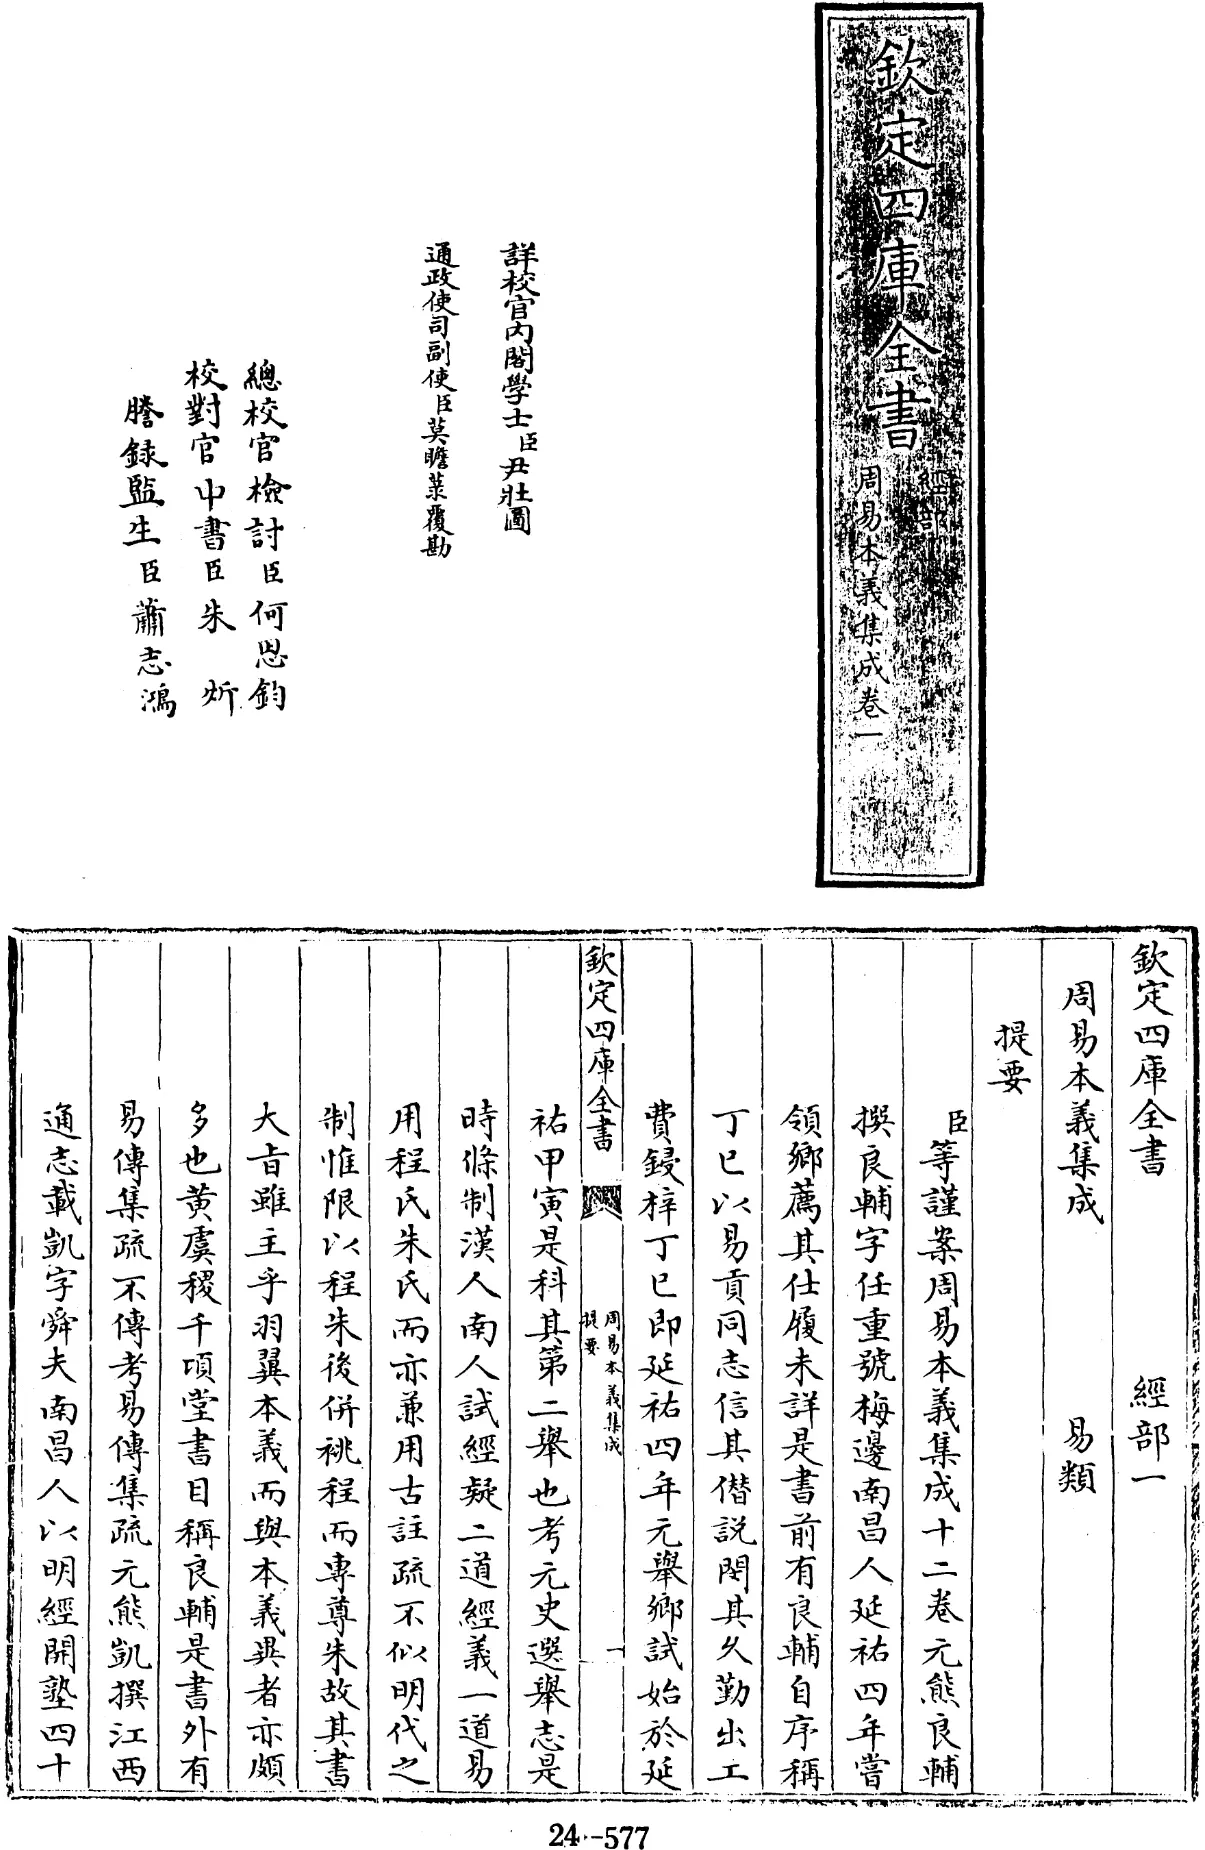 欽定四庫全書
經部
周易本義集成卷一
詳校官内閣學士臣尹壯圖
通政使司副使臣莫瞻菉覆勘
總校官檢討臣何思鈞
校對官中書臣朱炘
謄録監生臣蕭志鴻
欽定四庫全書 經部一
周易本義集成 易類
提要
臣等謹案周易本義集成十二卷元熊良輔
撰良輔字任重號梅邊南昌人延祐四年嘗
領鄉薦其仕履未詳是書前有良輔自序稱
丁巳以易貢同志信其僭説閔其久勤出工
費鋟梓丁巳即延祐四年元舉鄉試始於延
欽定四庫全書
周易本義集成
提要
一
祐甲寅是科其第二舉也考元史選舉志是
時條制漢人南人試經疑二道經義一道易
用程氏朱氏而亦兼用古註疏不似明代之
制惟限以程朱後併祧程而專尊朱故其書
大旨雖主乎羽翼本義而與本義異者亦頗
多也黄虞稷千頃堂書目稱良輔是書外有
易傳集疏不傳考易傳集疏元熊凱撰江西
通志載凱字舜夫南昌人以明經開塾四十
24--577